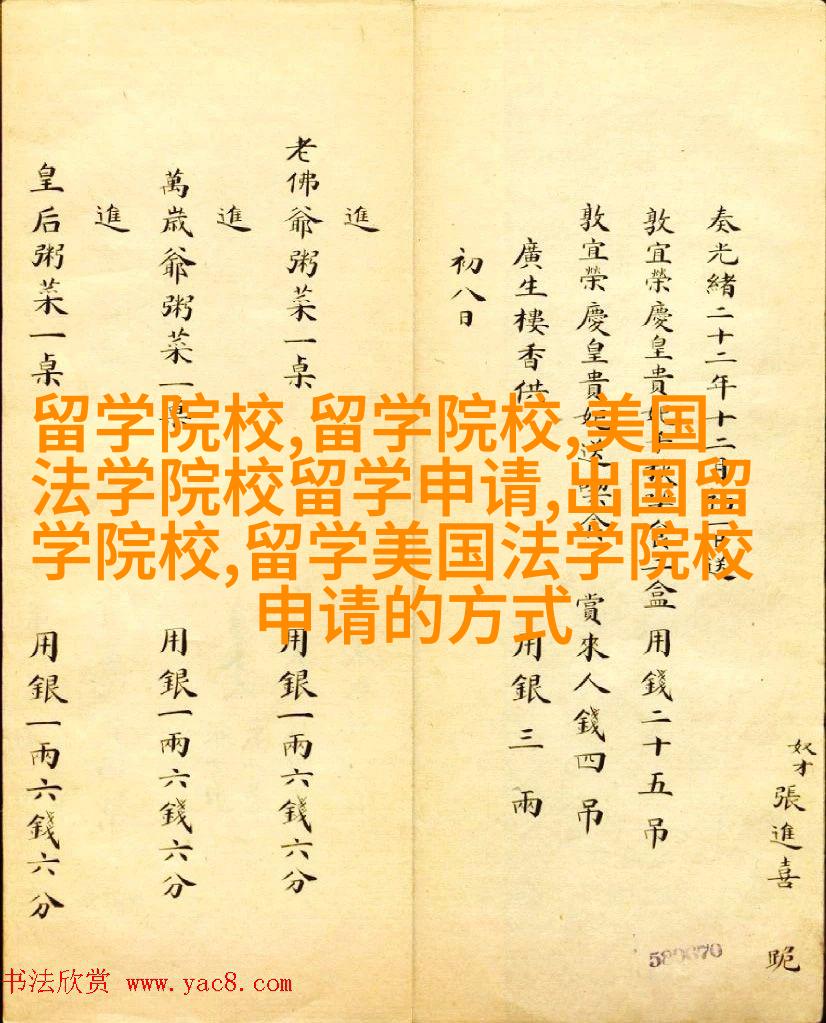 奴才張進喜 跪
奏光緒二十二年十二月
敦宜榮慶皇貴妃 盒 用錢二十五吊
敦宜榮慶皇貴妃送 賞來人錢四吊
廣生樓香供 用銀三兩
初八日
進
老佛爺粥菜一桌 用銀一兩六錢六分
進
萬歲爺粥菜一桌 用銀一兩六錢六分
進
皇后粥菜一桌 用銀一兩六錢六分
留学院校,留学院校,美国
法学院校留学申请,出国留
学院校,留学美国法学院校
申请的方式
书法欣赏 www.yac8.com